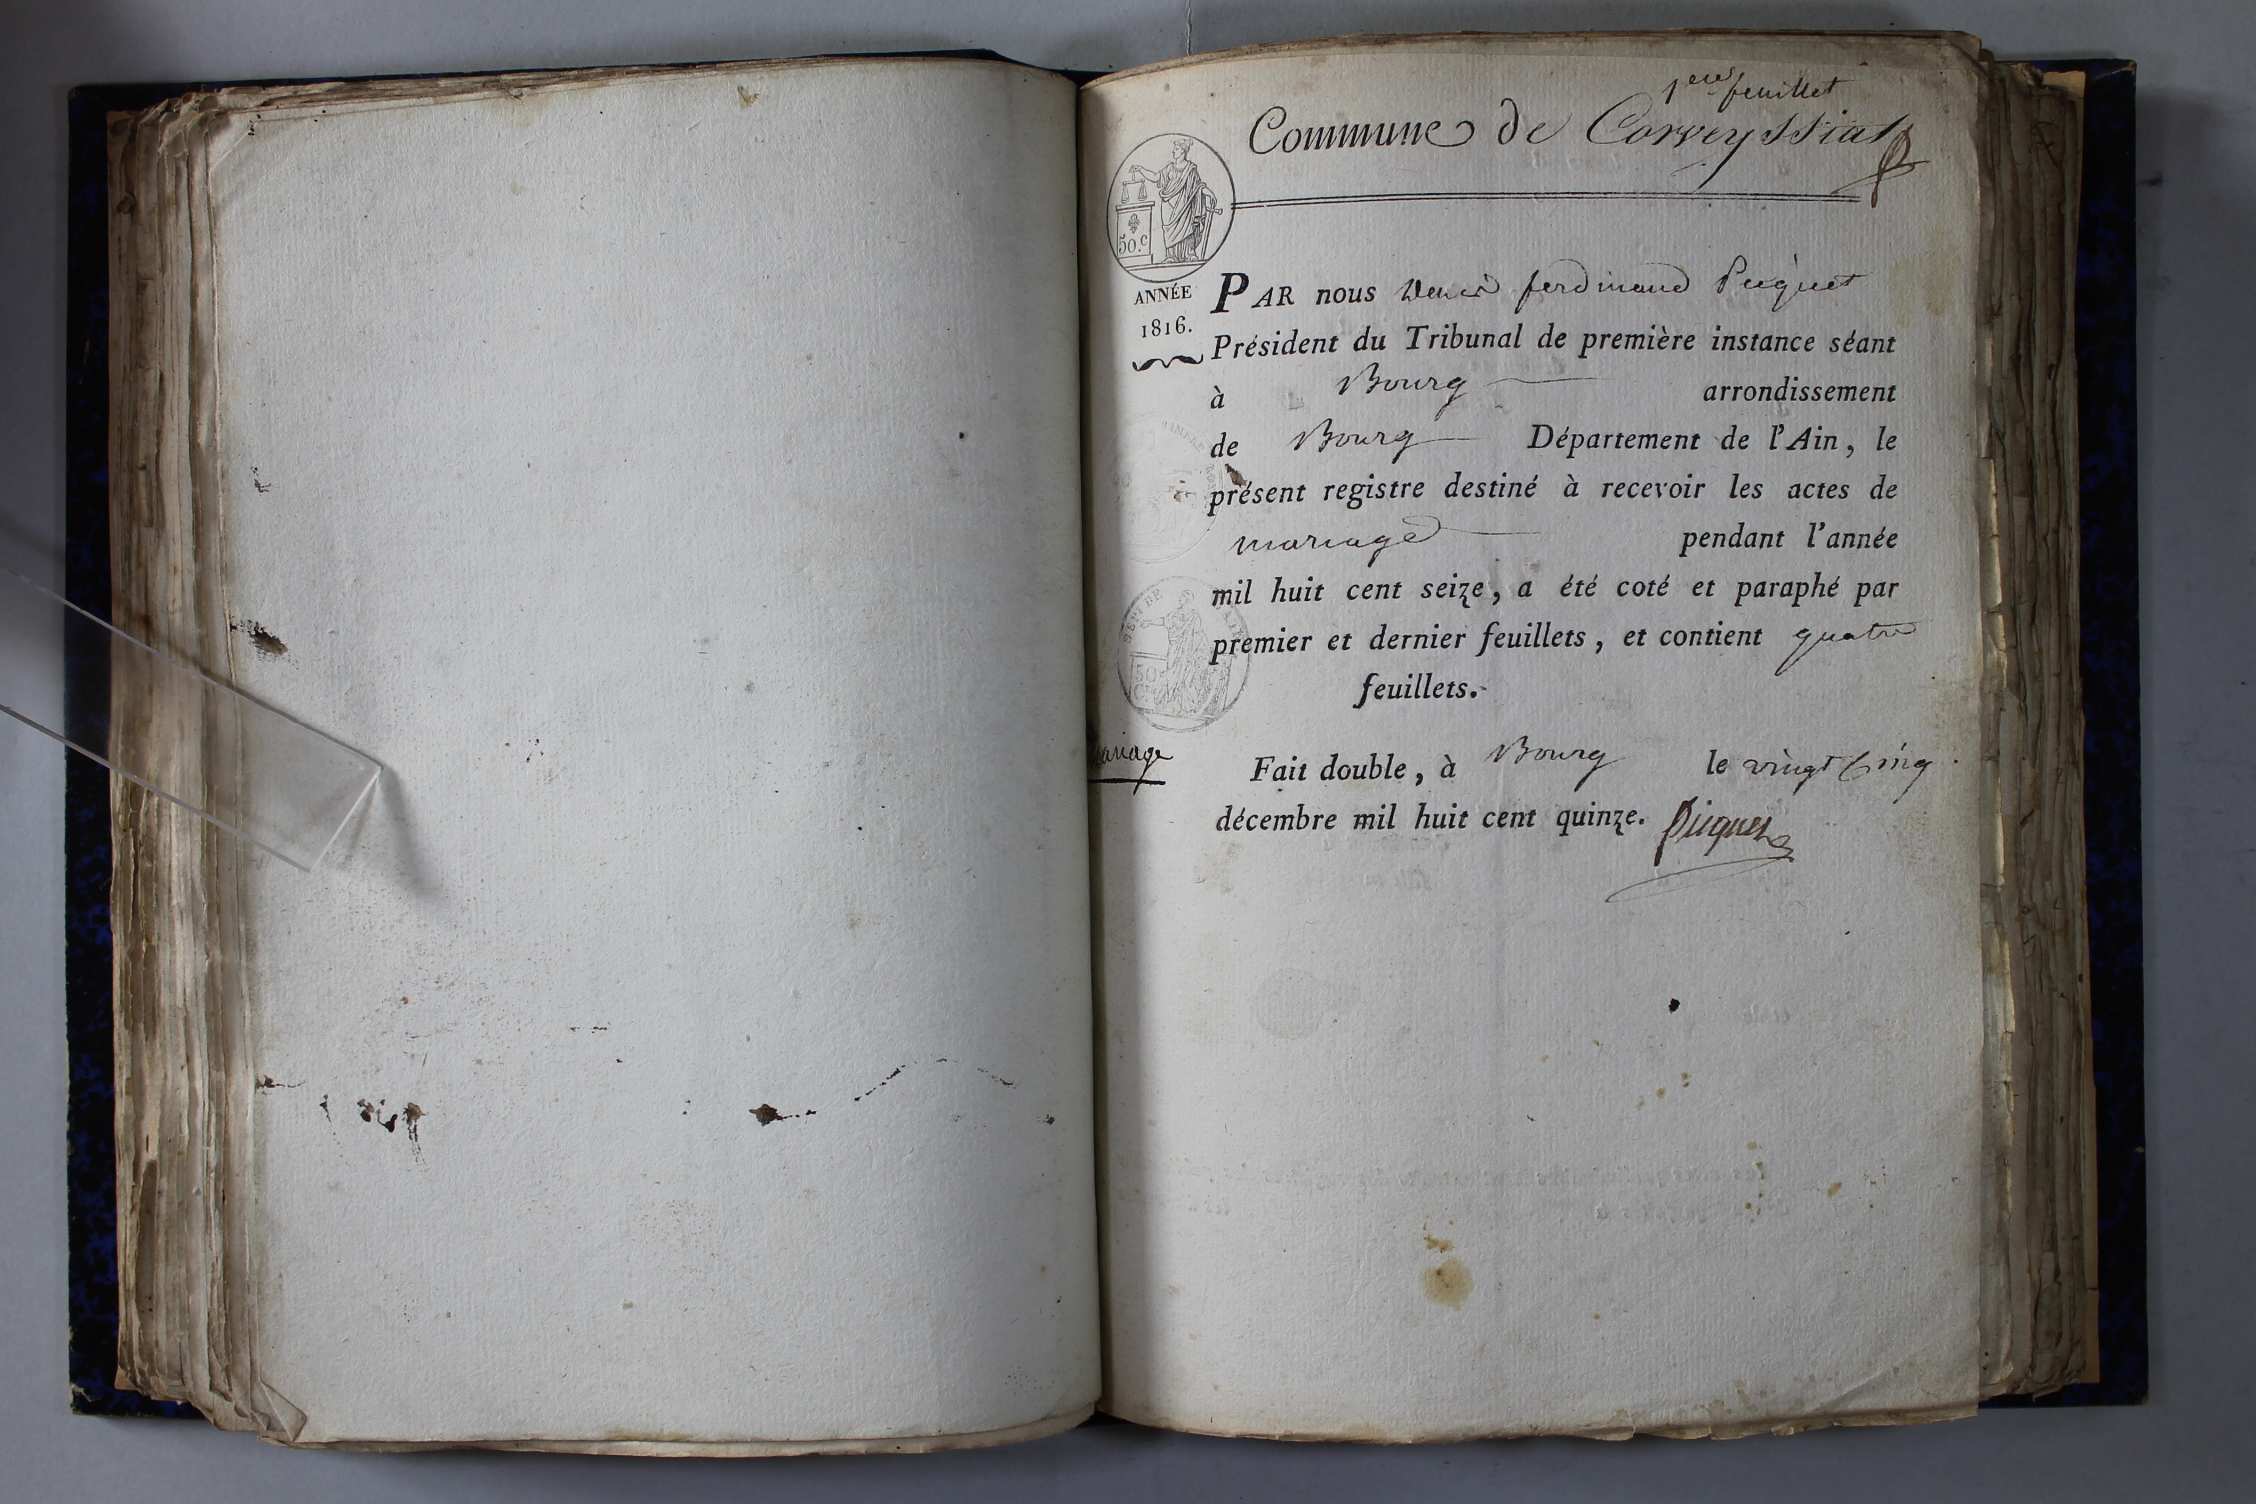 1er feuillet
Commune de Corveyssiat
50.c
ANNÉE
1816.
PAR nous Denis ferdinand Picquet
Président du Tribunal de première instance séant
à Bourg arrondissement
de Bourg Département de l'Ain, le
présent registre destiné à recevoir les actes de
mariage pendant l'année
mil huit cent seize, a été coté et paraphé par
premier et dernier feuillets, et contient quatre
feuillets.
mariage
Fait double, à Bourg le vingt cinq
décembre mil huit cent quinze. Picquet